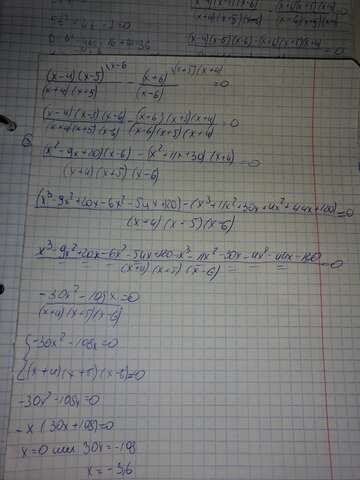 (x-4)(x-5)^{\x-6} / (x+4)(x+5) - (x+6)^{\(x+5)(x+4)} / (x-6) = 0
(x-4)(x-5)(x-6) / (x+4)(x+5)(x-6) - (x+6)(x+5)(x+4) / (x-6)(x+5)(x+4) = 0
(x²-9x+20)(x-6) - (x²+11x+30)(x+4) / (x+4)(x+5)(x-6) = 0
(x³-9x²+20x-6x²-54x+120) - (x³+11x²+30x+4x²+44x+120) / (x+4)(x+5)(x-6) = 0
x³-9x²+20x-6x²-54x+120-x³-11x²-30x-4x²-44x-120 / (x+4)(x+5)(x-6) = 0
-30x²-108x / (x+4)(x+5)(x-6) = 0
{-30x²-108x=0
{(x+4)(x+5)(x-6)=0
-30x²-108x=0
-x(30x+108)=0
x=0 или 30x=-108
x=-3,6